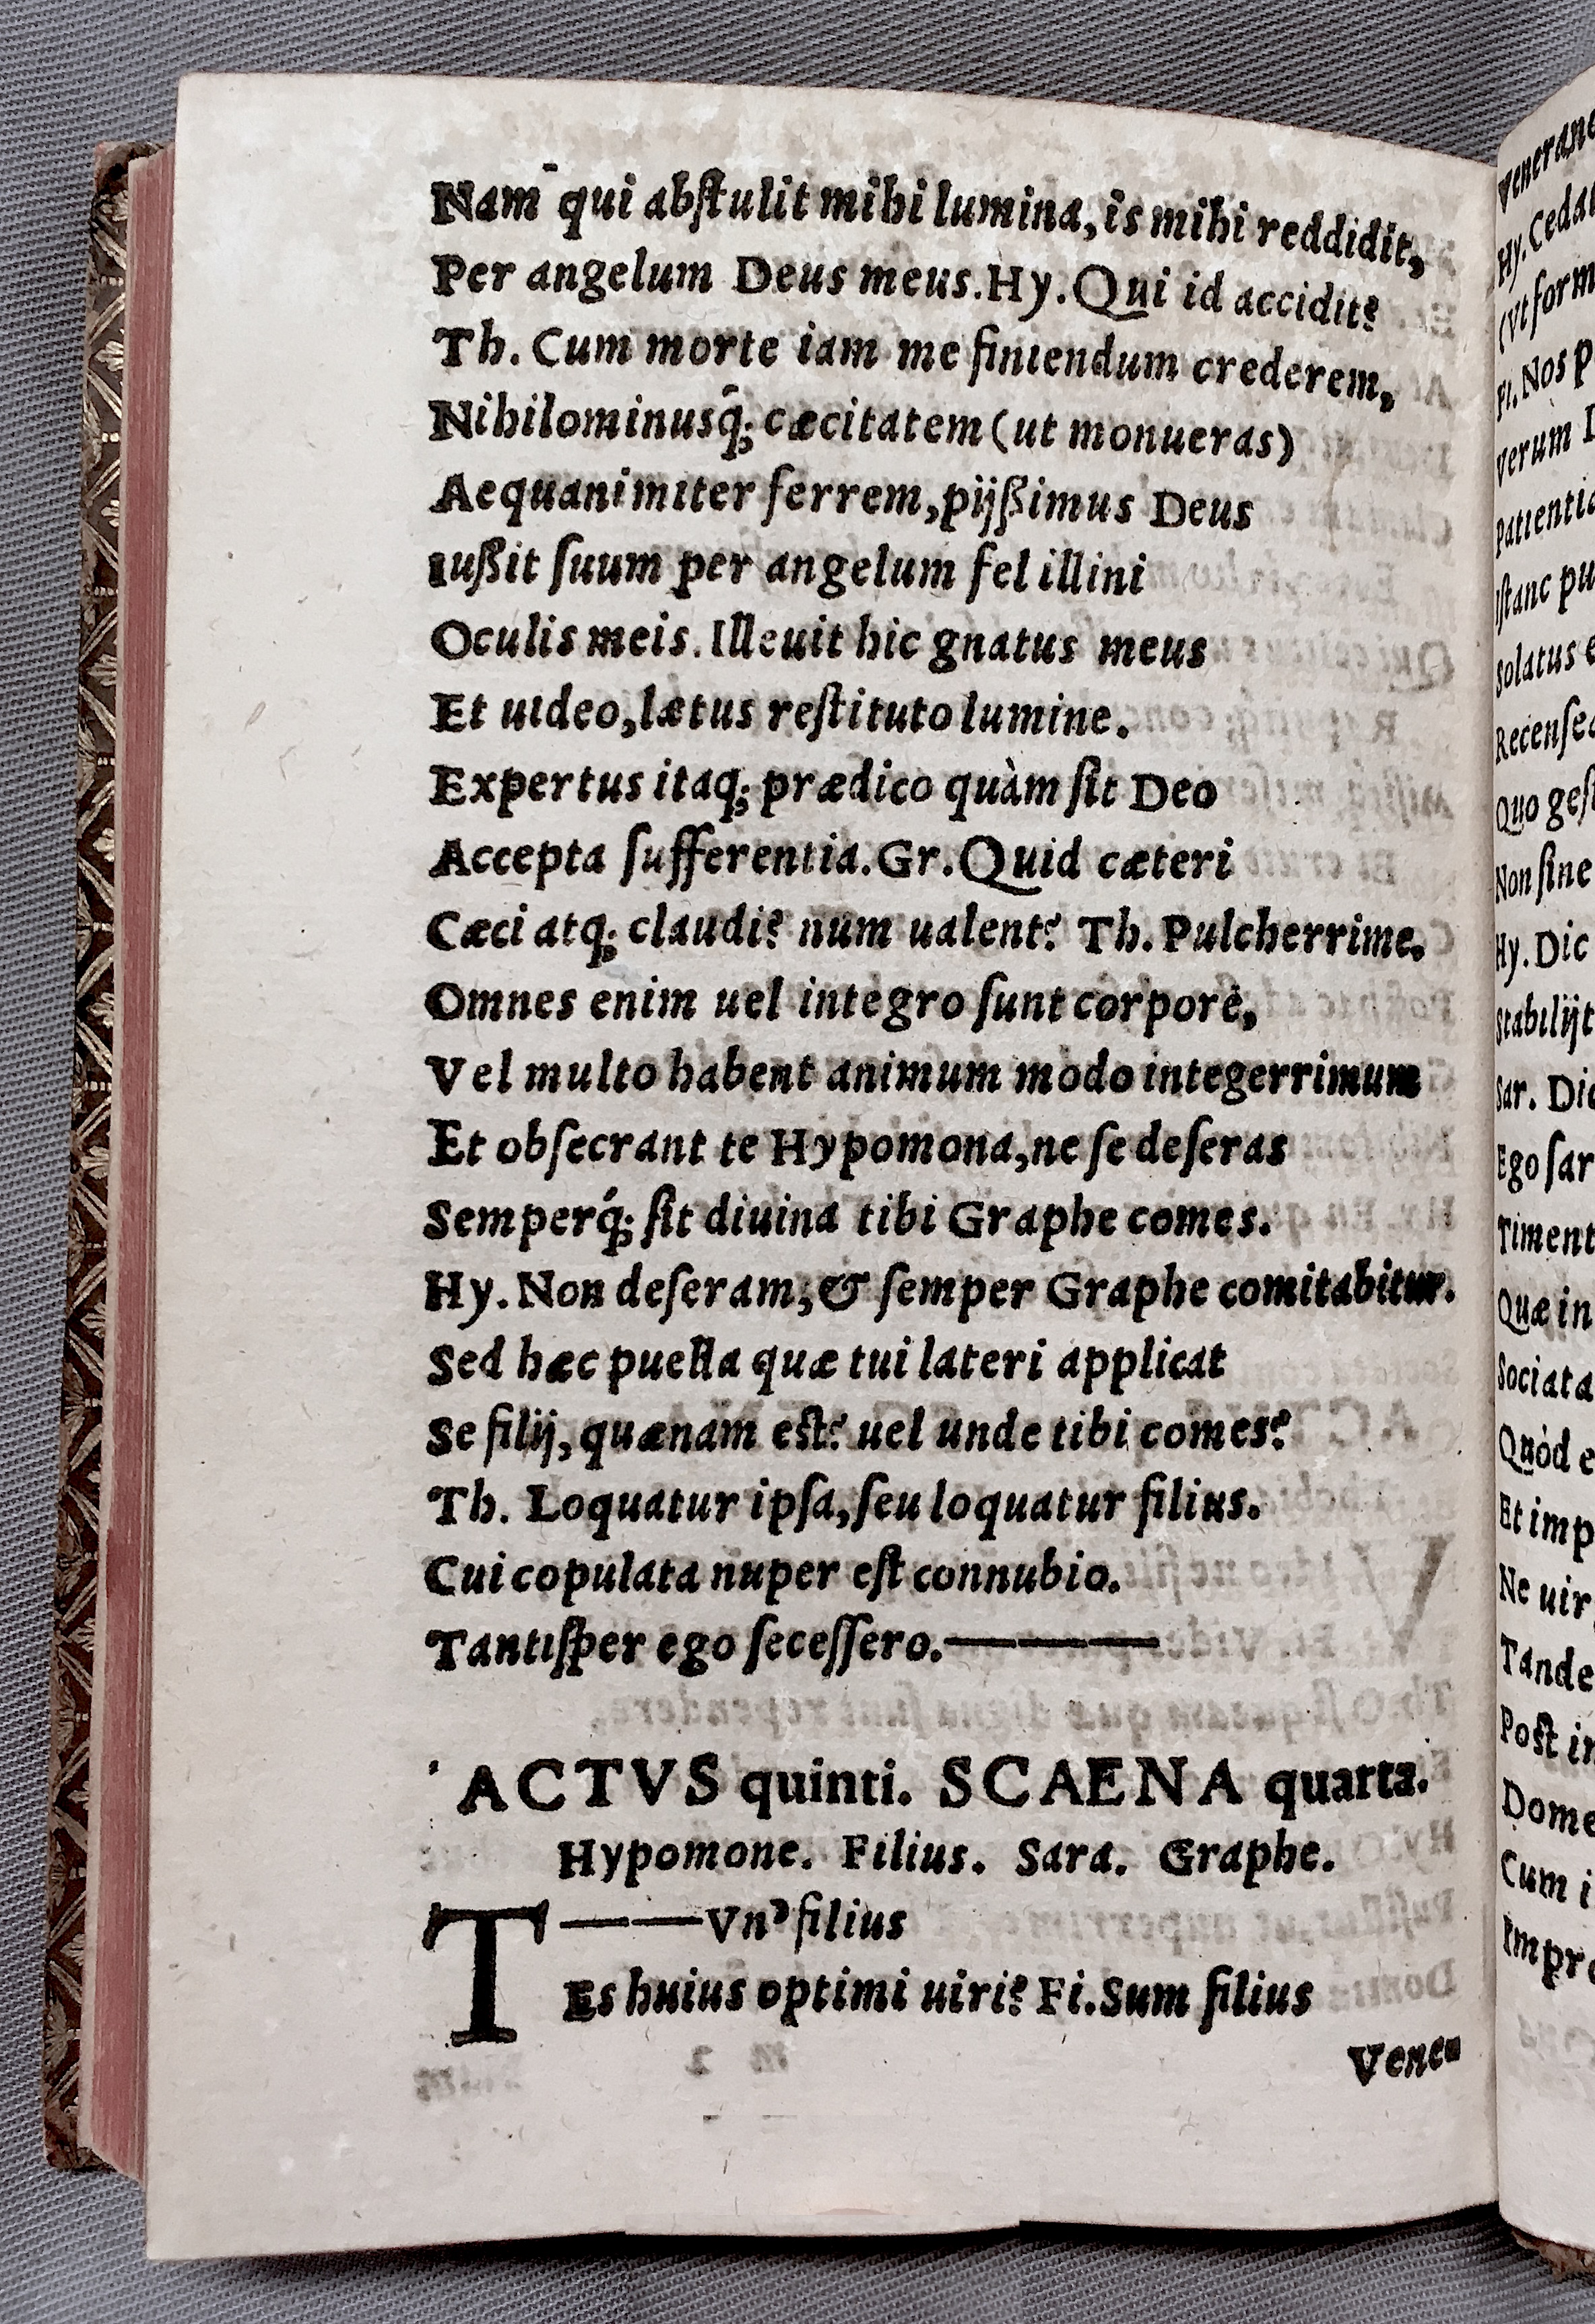 Nam qui abſtulit mihi lumina, is mihi reddidit,
Per angelum Deus meus. Hy. Qui id accidit?
Th. Cum morte iam me finiendum crederem,
Nihilominusq́; cæcitatem (ut monueras)
Aequanimiter ferrem, pijßimus Deus
Iußit ſuum per angelum fel illini
Oculis meis. Illeuit hic gnatus meus
Et uideo, lætus reſtituto lumine.
Expertus itaq; prædico quàm ſit Deo
Accepta ſufferentia. Gr. Quid cæteri
Cæci atq; claudi? num ualent? Th. Pulcherrime.
Omnes enim uel integro ſunt corpore,
Vel multo habent animum modo integerrimum
Et obſecrant te Hypomona, ne ſe deſeras
Semperq́; ſit diuina tibi Graphe comes.
Hy. Non deſeram, & ſemper Graphe comitabitur.
Sed hæc puella quæ tui lateri applicat
Se filij, quænam eſt? uel unde tibi comes?
Th. Loquatur ipſa, ſeu loquatur filius.
Cui copulata nuper eſt connubio.
Tantiſper ego ſeceſſero. ———
ACTVS quinti. SCAENA quarta.
Hypomone. Filius. Sara. Graphe.
T ——Vnꝰ filius
Es huius optimi uiri? Fi. Sum filius
Vene
Hy. Ceda
(Vt form
Fi. Nos p
Verum
Patientia
Iſtanc pu
Solatus
Recenſe
Quo geſ
Non ſine
Hy. Dic
Stabilijt
Sar. Dic
Ego ſar
Timent
Quæ in
Sociata
Quòd e
Et imp
Ne uir
Tande
Poſt in
Dome
Cum i
Impr